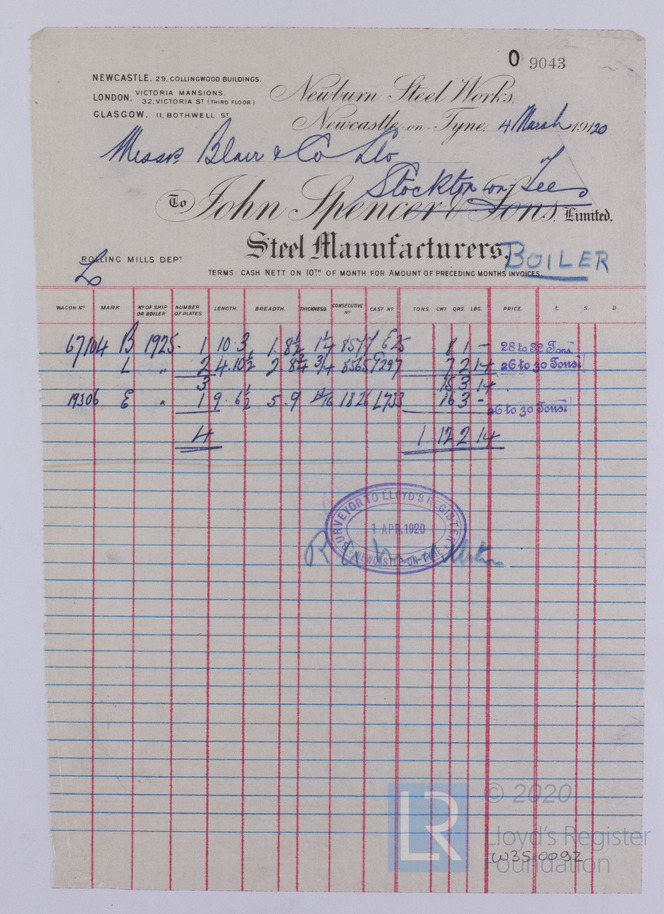 O 9043
NEWCASTLE, 29. COLLINGWOOD BUILDINGS.
LONDON. VICTORIA MANSIONS.
32, VICTORIA ST (THIRD FLOOR)
GLASGOW. 11, BOTHWELL ST.
Newburn Steel Works,
Newcastle-on-Tyne, 4 March 1920
Messrs Blair & Co Ld
Stockton on Tees
To John Spencer & Sons, Limited,
Steel Manufacturers,
BOILER
ROLLING MILLS DEPT
TERMS: CASH NETT ON 10TH OF MONTH FOR AMOUNT OF PRECEDING MONTHS INVOICES.
WAGON NO MARK NO OF SHIP OR BOILER NUMBER OF PLATES LENGTH. BREADTH. THICKNESS CONSECUTIVE NO CAST NO TONS. CWT. QRS. LBS. PRICE. £. S. D.
67104 B 1925 1 10.3 1.8½ 1¼ 28 to 32 Tons
L " 2 4.10½ 2 7 2 14 26 to 30 Tons
3 3 14
19306 E " 1 9.6½ 5.9 16 3 - 26 to 30 Tons
4 1 12 2 14
SURVEYOR TO LLOYD'S REGISTER
1 APR. 1920
NEWCASTLE-ON-TYNE
LR
© 2020
Lloyd's Register
Foundation
W351-0092